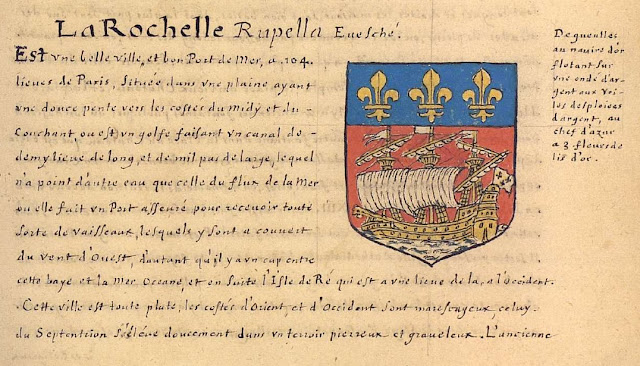 La Rochelle Rupella Evesché.
Est vne belle ville, et bon Port de Mer, a 104.
lieues de Paris, Située dans vne plaine ayant
vne douce pente vers les costes du Midy et du
Couchant ou est vn golfe faisant vn canal de
demy lieue de long, et de mil pas de large, lequel
n'a point d'autre eau que celle du flux de la Mer
ou elle fait vn Port asseuré pour receuoir toute
sorte de vaisseaux, lesquels y sont a couuert
du vent d'Ouest, d'autant qu'il y a vn cap entre
cette baye et la Mer Oceane, et en suite l'Isle de Ré qui est a vne lieue de la, a l'occident.
Cette ville est toute plate, les costés d'Orient, et d'Occident sont marescageux, celuy
du Septentrion s'éléue doucement dans vn terroir pierreux et graueleux. L'ancienne
De gueulles
au nauire d'or
flotant sur
vne onde d'ar-
gent aux voi-
les desploiees
d'argent, au
chef d'azur
a 3 fleurs de
lis d'or.